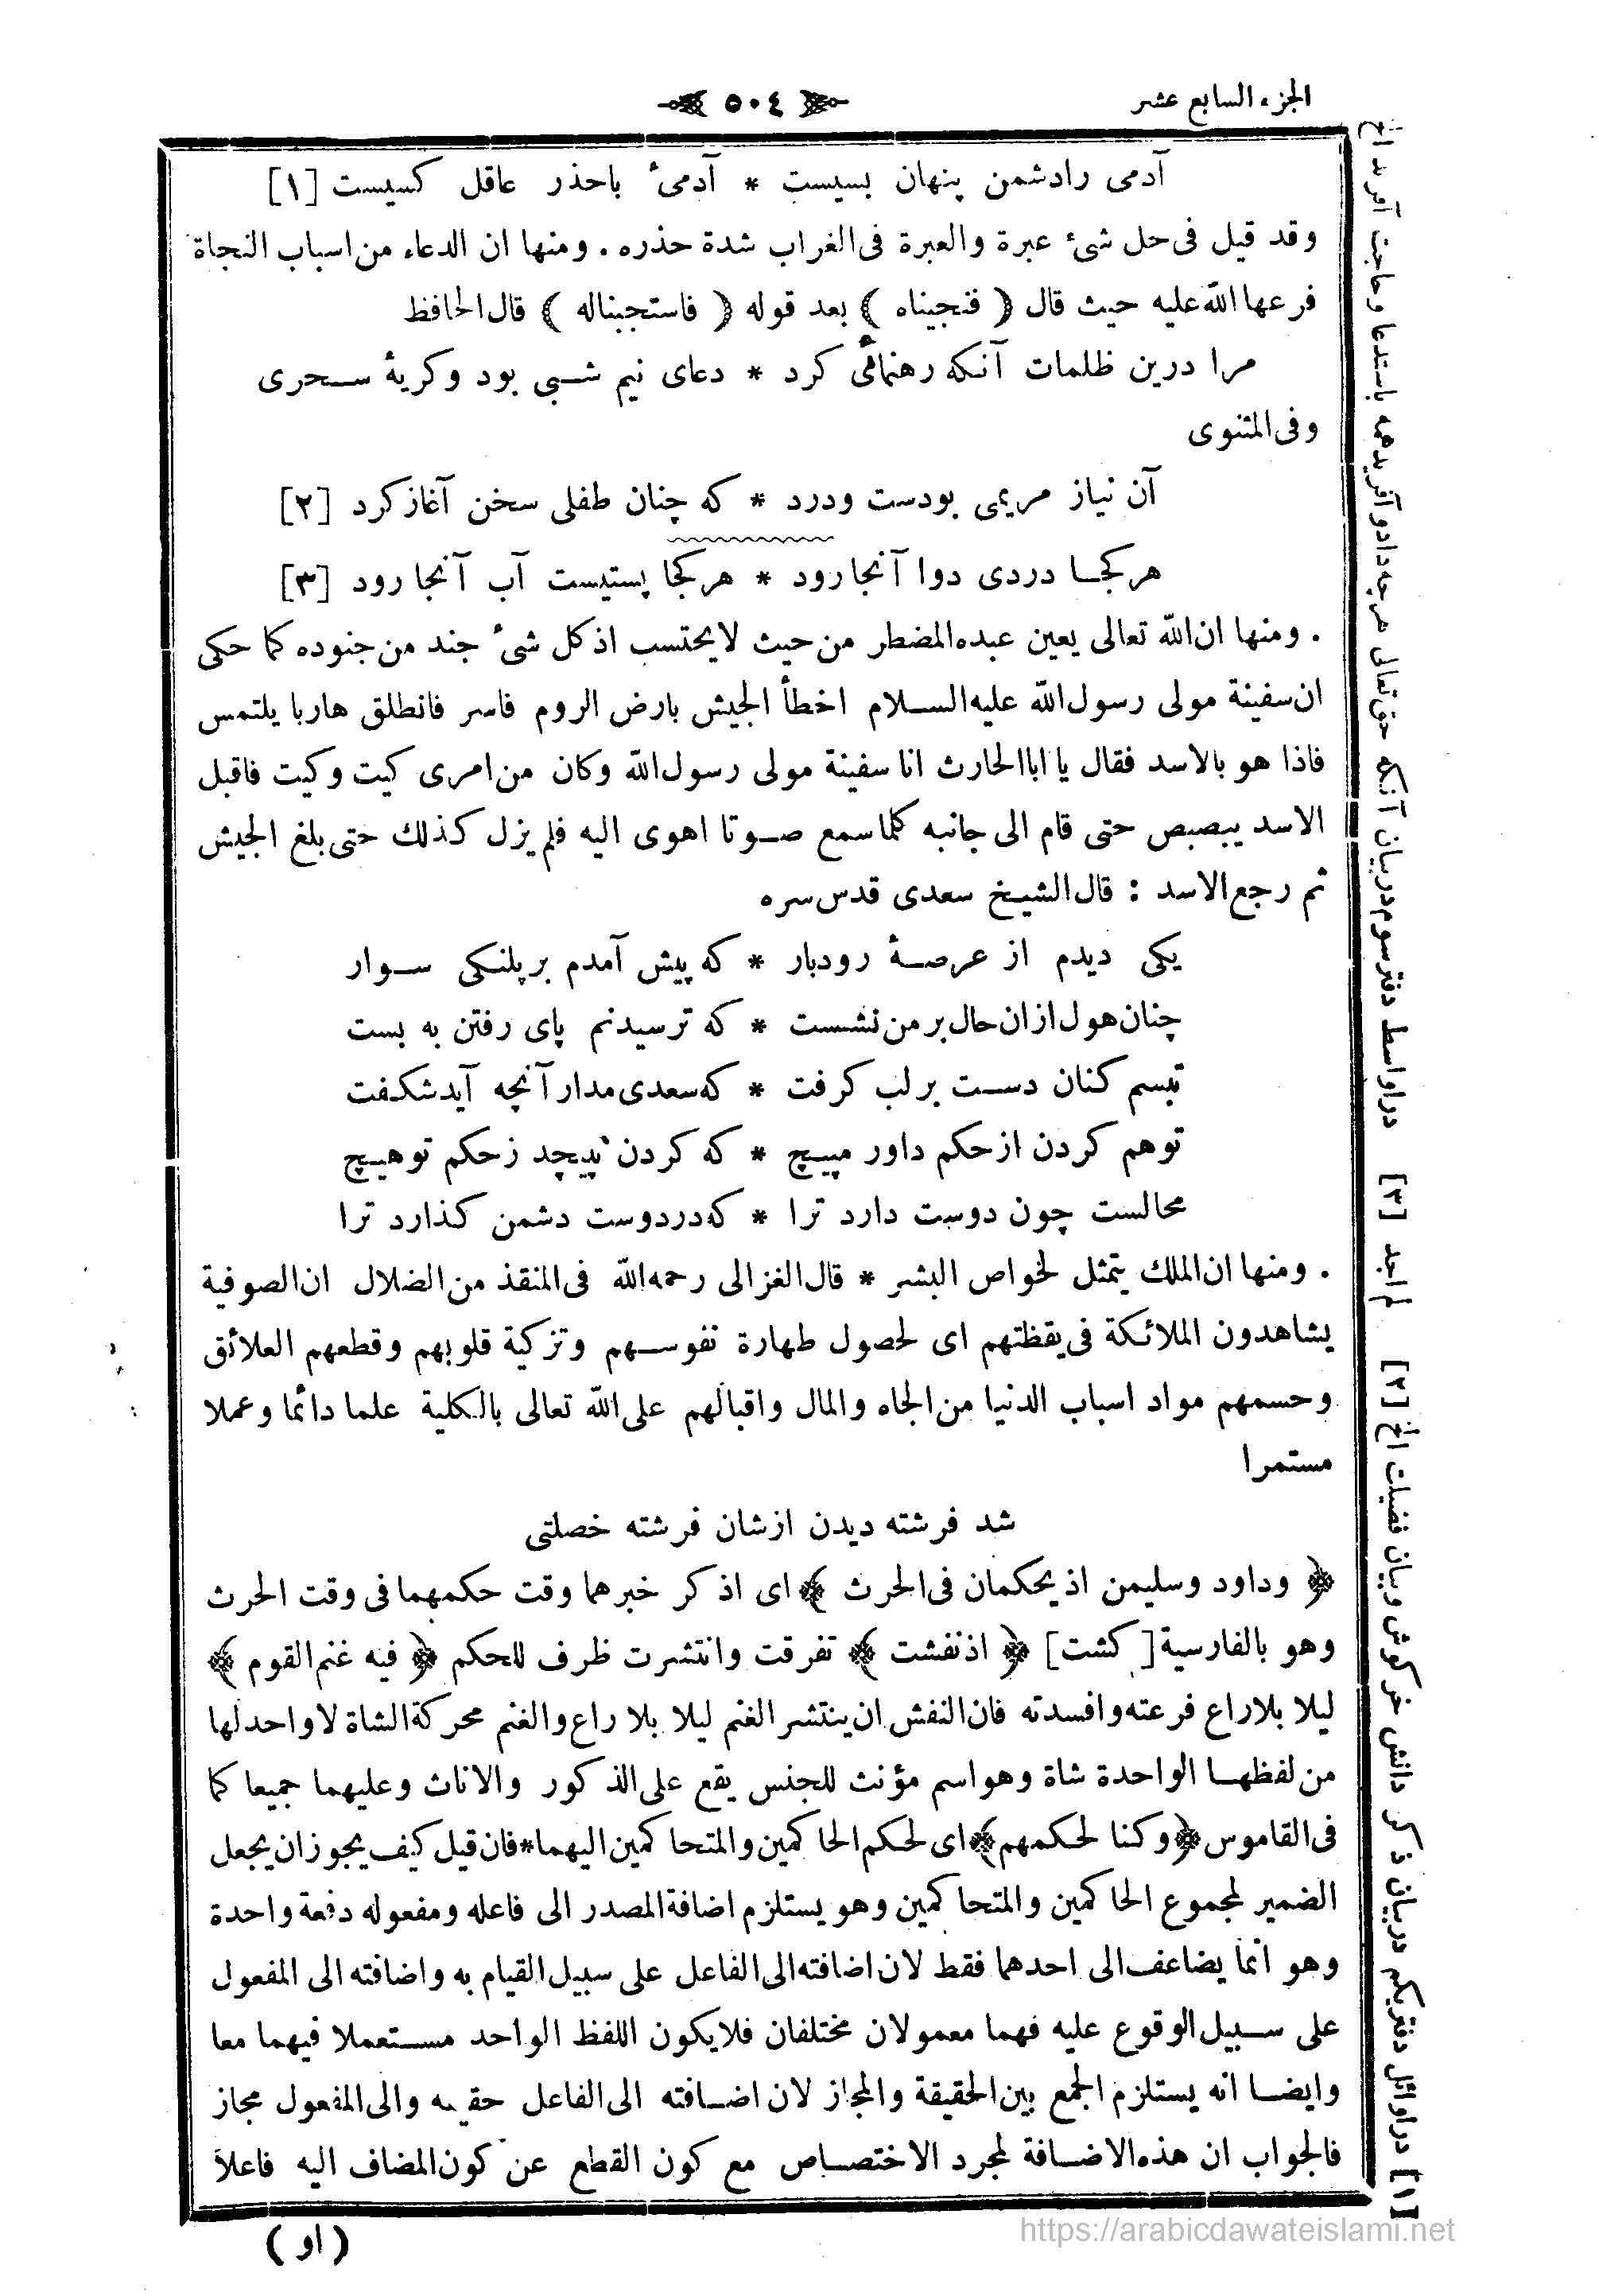 الجزء السابع عشر
٥٠٤
آدمى رادشمن پنهان بسيست * آدمئ باحذر عاقل كسيست [١]
وقد قيل فى حل شىء عبرة والعبرة فى الغراب شدة حذره . ومنها ان الدعاء من اسباب النجاة
فرعها الله عليه حيث قال ﴿ فنجيناه ﴾ بعد قوله ﴿ فاستجبناله ﴾ قال الحافظ
مرا درين ظلمات آنكه رهنمائى كرد * دعاى نيم شبى بود وكريۀ سحرى
وفى المثنوى
آن نياز مريمى بودست ودرد * كه چنان طفلى سخن آغاز كرد [٢]
هر كجا دردى دوا آنجا رود * هر كجا پستيست آب آنجا رود [٣]
. ومنها ان الله تعالى يعين عبده المضطر من حيث لا يحتسب اذ كل شىء جند من جنوده كما حكى
ان سفينة مولى رسول الله عليه السلام اخطأ الجيش بارض الروم فاسر فانطلق هاربا يلتمس
فاذا هو بالاسد فقال يا ابا الحارث انا سفينة مولى رسول الله وكان من امرى كيت وكيت فاقبل
الاسد يبصبص حتى قام الى جانبه كلما سمع صوتا اهوى اليه فلم يزل كذلك حتى بلغ الجيش
ثم رجع الاسد : قال الشيخ سعدى قدس سره
يكى ديدم از عرصۀ رودبار * كه پيش آمدم بر پلنكى سوار
چنان هول ازان حال بر من نشست * كه ترسيدنم پاى رفتن به بست
تبسم كنان دست بر لب كرفت * كه سعدى مدار آنچه آيد شكفت
تو هم كردن از حكم داور مپيچ * كه كردن نپيچد ز حكم تو هيچ
محالست چون دوست دارد ترا * كه در دوست دشمن كذارد ترا
. ومنها ان الملك يتمثل لخواص البشر * قال الغزالى رحمه الله فى المنقذ من الضلال ان الصوفية
يشاهدون الملائكة فى يقظتهم اى لحصول طهارة نفوسهم وتزكية قلوبهم وقطعهم العلائق
وحسمهم مواد اسباب الدنيا من الجاه والمال واقبالهم على الله تعالى بالكلية علما دائما وعملا
مستمرا
شد فرشته ديدن از شان فرشته خصلتى
﴿ وداود وسليمن اذ يحكمان فى الحرث ﴾ اى اذكر خبرهما وقت حكمهما فى وقت الحرث
وهو بالفارسية [ كشت] ﴿ اذ نفشت ﴾ تفرقت وانتشرت ظرف للحكم ﴿ فيه غنم القوم ﴾
ليلا بلا راع فرعته وافسدته فان النفش ان ينتشر الغنم ليلا بلا راع والغنم محركة الشاة لا واحد لها
من لفظها الواحدة شاة وهو اسم مؤنث للجنس يقع على الذكور والاناث وعليهما جميعا كما
فى القاموس ﴿ وكنا لحكمهم ﴾ اى لحكم الحاكمين والمتحاكمين اليهما * فان قيل كيف يجوز ان يجعل
الضمير لمجموع الحاكمين والمتحاكمين وهو يستلزم اضافة المصدر الى فاعله ومفعوله دفعة واحدة
وهو انما يضاعف الى احدهما فقط لان اضافته الى الفاعل على سبيل القيام به واضافته الى المفعول
على سبيل الوقوع عليه فهما معمولان مختلفان فلا يكون اللفظ الواحد مستعملا فيهما معا
وايضا انه يستلزم الجمع بين الحقيقة والمجاز لان اضافته الى الفاعل حقيقه والى المفعول مجاز
فالجواب ان هذه الاضافة لمجرد الاختصاص مع كون القطع عن كون المضاف اليه فاعلا
( او )
[١] دراوائل دفتريكم دربيان ذكر دانش خركوش وبيان فضيلت الخ [٢] لم اجد [٣] دراواسط دفترسوم دربيان آنكه حق تعالى هرچه دادو آفريد همه باستدعا وحاجت آفريد الخ
https://arabicdawateislami.net